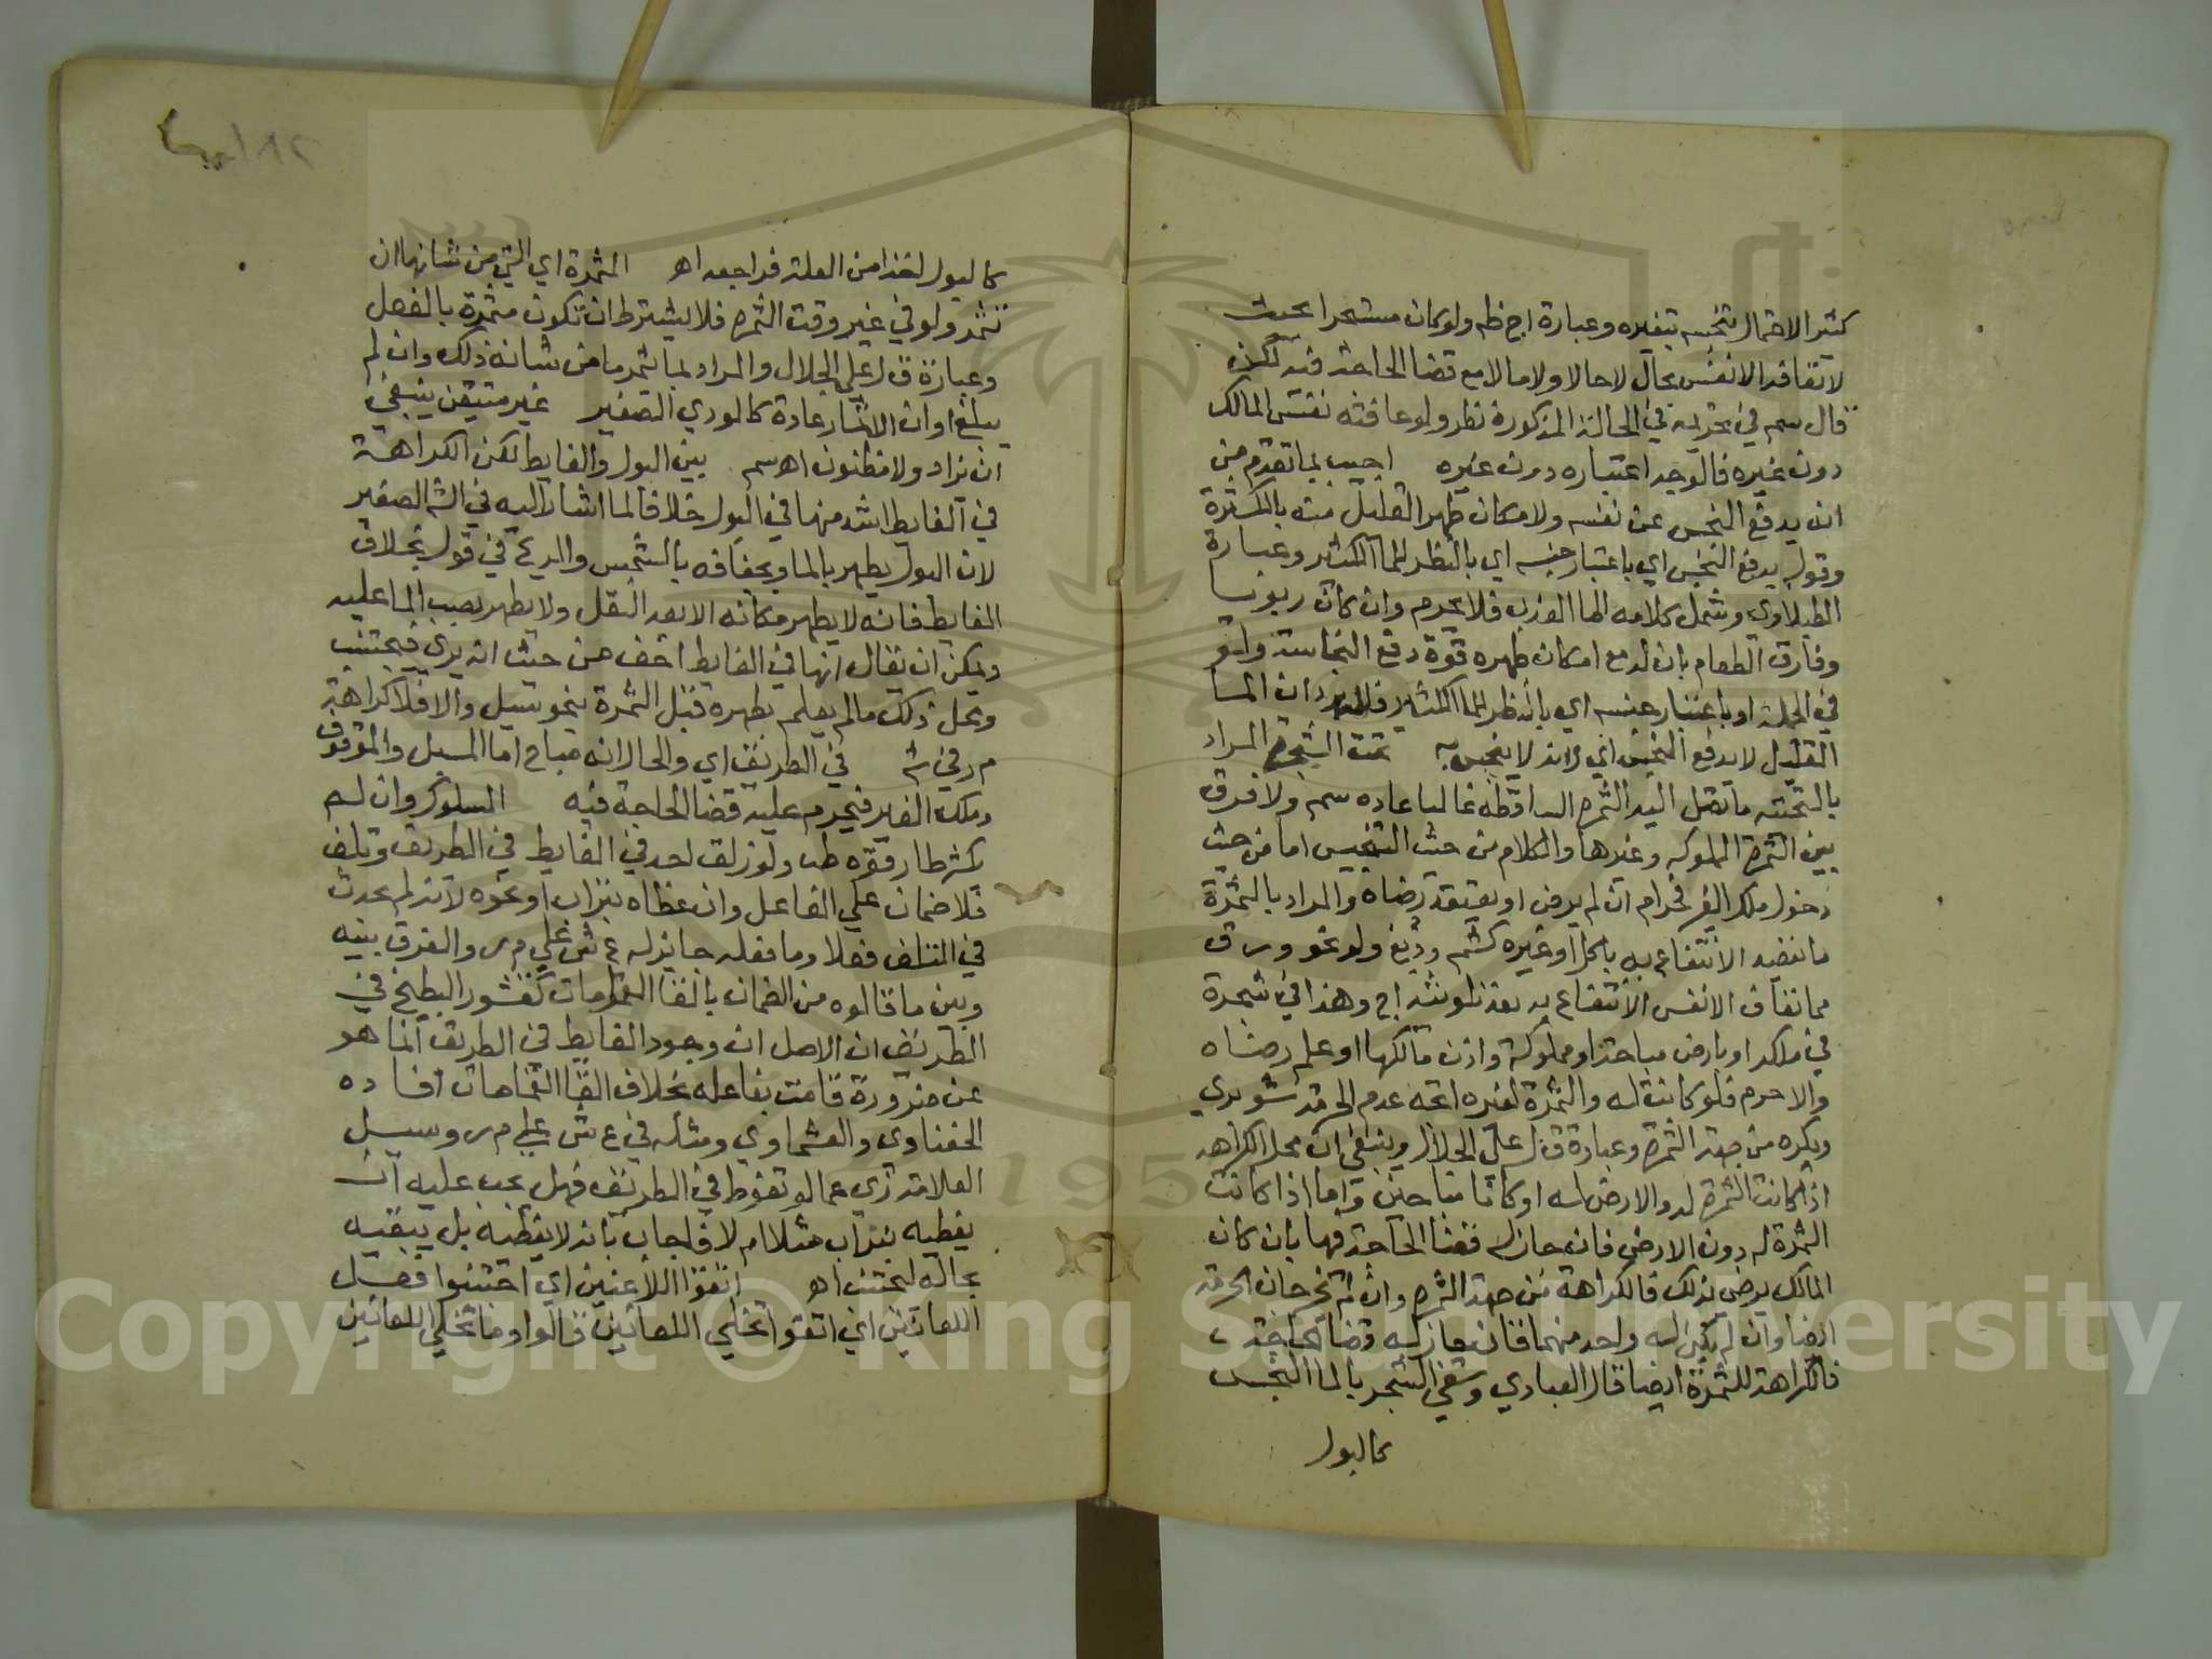 كثر الاحتمال تنجسه بتغيره وعبارة اج ظم ولو كان مستبحرا بحيث
لا تعافه الانفس بحال لا حالا ولا مالا مع قضا الحاجة فيه لكن
قال سم في تحريمه في الحالة المذكورة نظر ولو عافته نفس المالك
دون غيره فالوجه اعتباره دون غيره اجيب بما تقدم من
انه يدفع النجس عن نفسه ولامكان طهر القليل منه بالمكثرة
وقوله يدفع النجس اي باعتبار جنسه اي بالنظر للما الكثير وعبارة
الطبلاوي وشمل كلامه الما العذب فلا يحرم وان كان ربويا
وفارق الطعام بان له مع امكان طهره قوة دفع النجاسة ولو
في الجملة او باعتبار جنسه اي بالنظر للما الكثير فلا يرد ان الما
القليل لا يدفع النجس اي لانه لا ينجس به تحت الشجرة المراد
بالتحتية ما تصل اليه الثمرة الساقطة غالبا عاده سم ولا فرق
بين الثمرة المملوكه وغيرها والكلام من حيث التنجيس اما من حيث
دخول ملك الغير فحرام ان لم يرض او يعتقد رضاه والمراد بالثمرة
ما يقصد الانتفاع به باكل او غيره كشم ودبغ ولو نحو ورق
مما تعاف الانفس الانتفاع به بعد تلويثه اج وهذا في شجرة
في ملكه او بارض مباحة او مملوكة واذن مالكها او علم رضاه
والا حرم فلو كانت له والثمرة لغيره اتجه عدم الحرمة شوبري
ويكره من جهة الثمرة وعبارة ق ل على الجلال وينبغي ان محل الكراهه
اذا كانت الثمرة له والارض له او كانا مباحين واما اذا كانت
الثمرة له دون الارض فان جاز له قضا الحاجة فيها بان كان
المالك يرضى بذلك فالكراهة من جهة الثمرة وان لم يجز جا الحرمة
ايضا وان لم يكن له واحد منهما فان جاز له قضا الحاجة
فالكراهة للثمرة ايضا قال العبادي وسقي الشجر بالما النجس
كالبول
كالبول اخذا من العلة فراجعه اهـ المثمرة اي التي من شانها ان
تثمر ولو في غير وقت الثمرة فلا يشترط ان تكون مثمرة بالفعل
وعبارة ق ل على الجلال والمراد بما تثمر ما من شانه ذلك وان لم
يبلغ اوان الاثمار عادة كالودي الصغير غير متيقن ينبغي
ان يزاد ولا مظنون اهـ سم بين البول والغايط لكن الكراهة
في الغايط اشد منها في البول خلافا لما اشار اليه في الش الصغير
لان البول يطهر بالما وبجفافه بالشمس والريح في قول بخلاف
الغايط فانه لا يطهر مكانه الا بعد النقل ولا يطهر بصب الما عليه
ويمكن ان يقال انها في الغايط اخف من حيث انه يرى فيجتنب
ومحل ذلك مالم يعلم بطهره قبل الثمرة بنحو سيل والا فلا كراهة
م ر في ش في الطريق اي والحال انه مباح اما المسبل والموقوف
وملك الغير فيحرم عليه قضا الحاجة فيه المسلوك وان لم
يكثر طارقوه ولو زلق احد في الغايط في الطريق وتلف
فلا ضمان على الفاعل وان غطاه بتراب او نحوه لانه لم يحدث
في التلف فعلا وما فعله جايز له ع ش على م ر والفرق بينه
وبين ما قالوه من الضمان بالقا القمامات كقشور البطيخ في
الطريق ان الاصل ان وجود الغايط في الطريق انما هو
عن ضرورة قامت بفاعله بخلاف القا القمامات افاده
الحفناوي والعشماوي ومثله في ع ش على م ر وسيل
العلامة زي عما لو تغوط في الطريق فهل يجب عليه ان
يغطيه بتراب مثلا ام لا فاجاب بانه لا يغطيه بل يبقيه
بحاله ليجتنب اهـ اتقوا اللاعنين اي اجتنبوا فعل
اللعانين اي اتقوا تخلي اللعانين قالوا وما تخلي اللعانين
Copyright © King Saud University
195